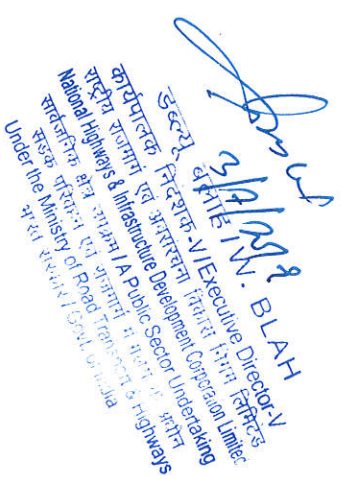 डब्ल्यू. ब्लाह / W. BLAH
कार्यपालक निदेशक-V / Executive Director-V
राष्ट्रीय राजमार्ग एवं अवसंरचना विकास निगम लिमिटेड
National Highways & Infrastructure Development Corporation Limited
सार्वजनिक क्षेत्र उपक्रम / A Public Sector Undertaking
सड़क परिवहन एवं राजमार्ग मंत्रालय के अधीन
Under the Ministry of Road Transport & Highways
भारत सरकार / Govt. of India